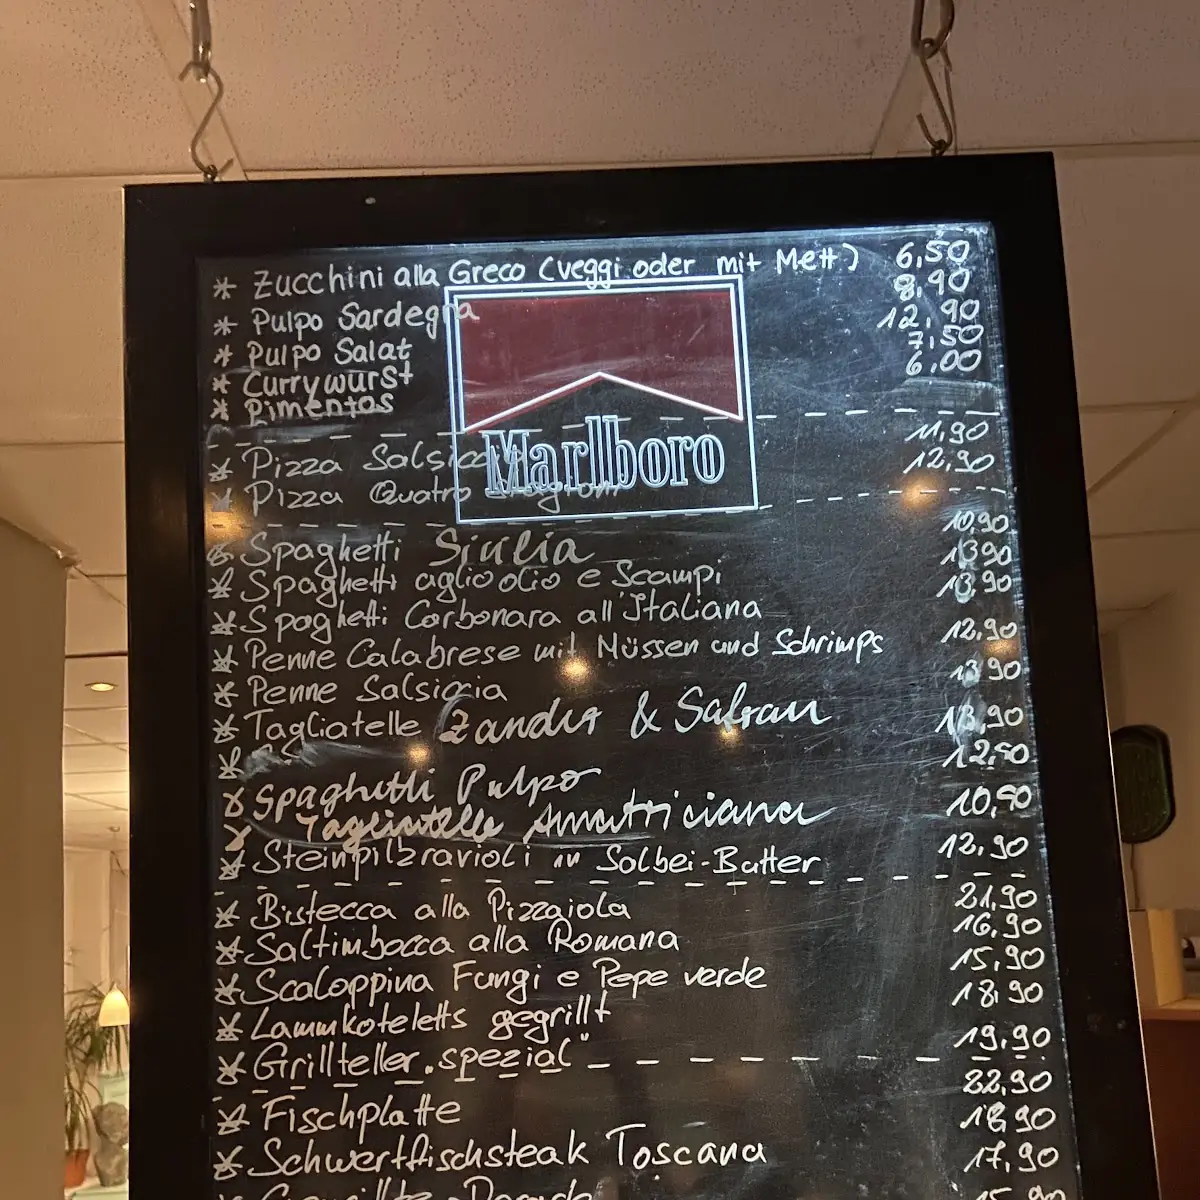 * Zucchini alla Greco (veggi oder mit Mett) 6,50
* Pulpo Sardegna 8,90
* Pulpo Salat 12,90
* Currywurst 7,50
* Pimentos 6,00
Marlboro
* Pizza Salsiccia 11,90
* Pizza Quatro Stagioni 12,90
* Spaghetti Giulia 10,90
* Spaghetti aglio olio e Scampi 13,90
* Spaghetti Carbonara all'Italiana 13,90
* Penne Calabrese mit Nüssen und Schrimps 12,90
* Penne Salsiccia 13,90
* Tagliatelle Zander & Safran 13,90
Spaghetti Pulpo 12,50
Tagliatelle Amatriciana 10,90
* Steinpilzravioli in Salbei-Butter 12,90
* Bistecca alla Pizzaiola 21,90
* Saltimbocca alla Romana 16,90
* Scaloppina Fungi e Pepe verde 15,90
* Lammkoteletts gegrillt 18,90
* Grillteller „spezial“ 19,90
* Fischplatte 22,90
18,90
* Schwertfischsteak Toscana 17,90
15,90